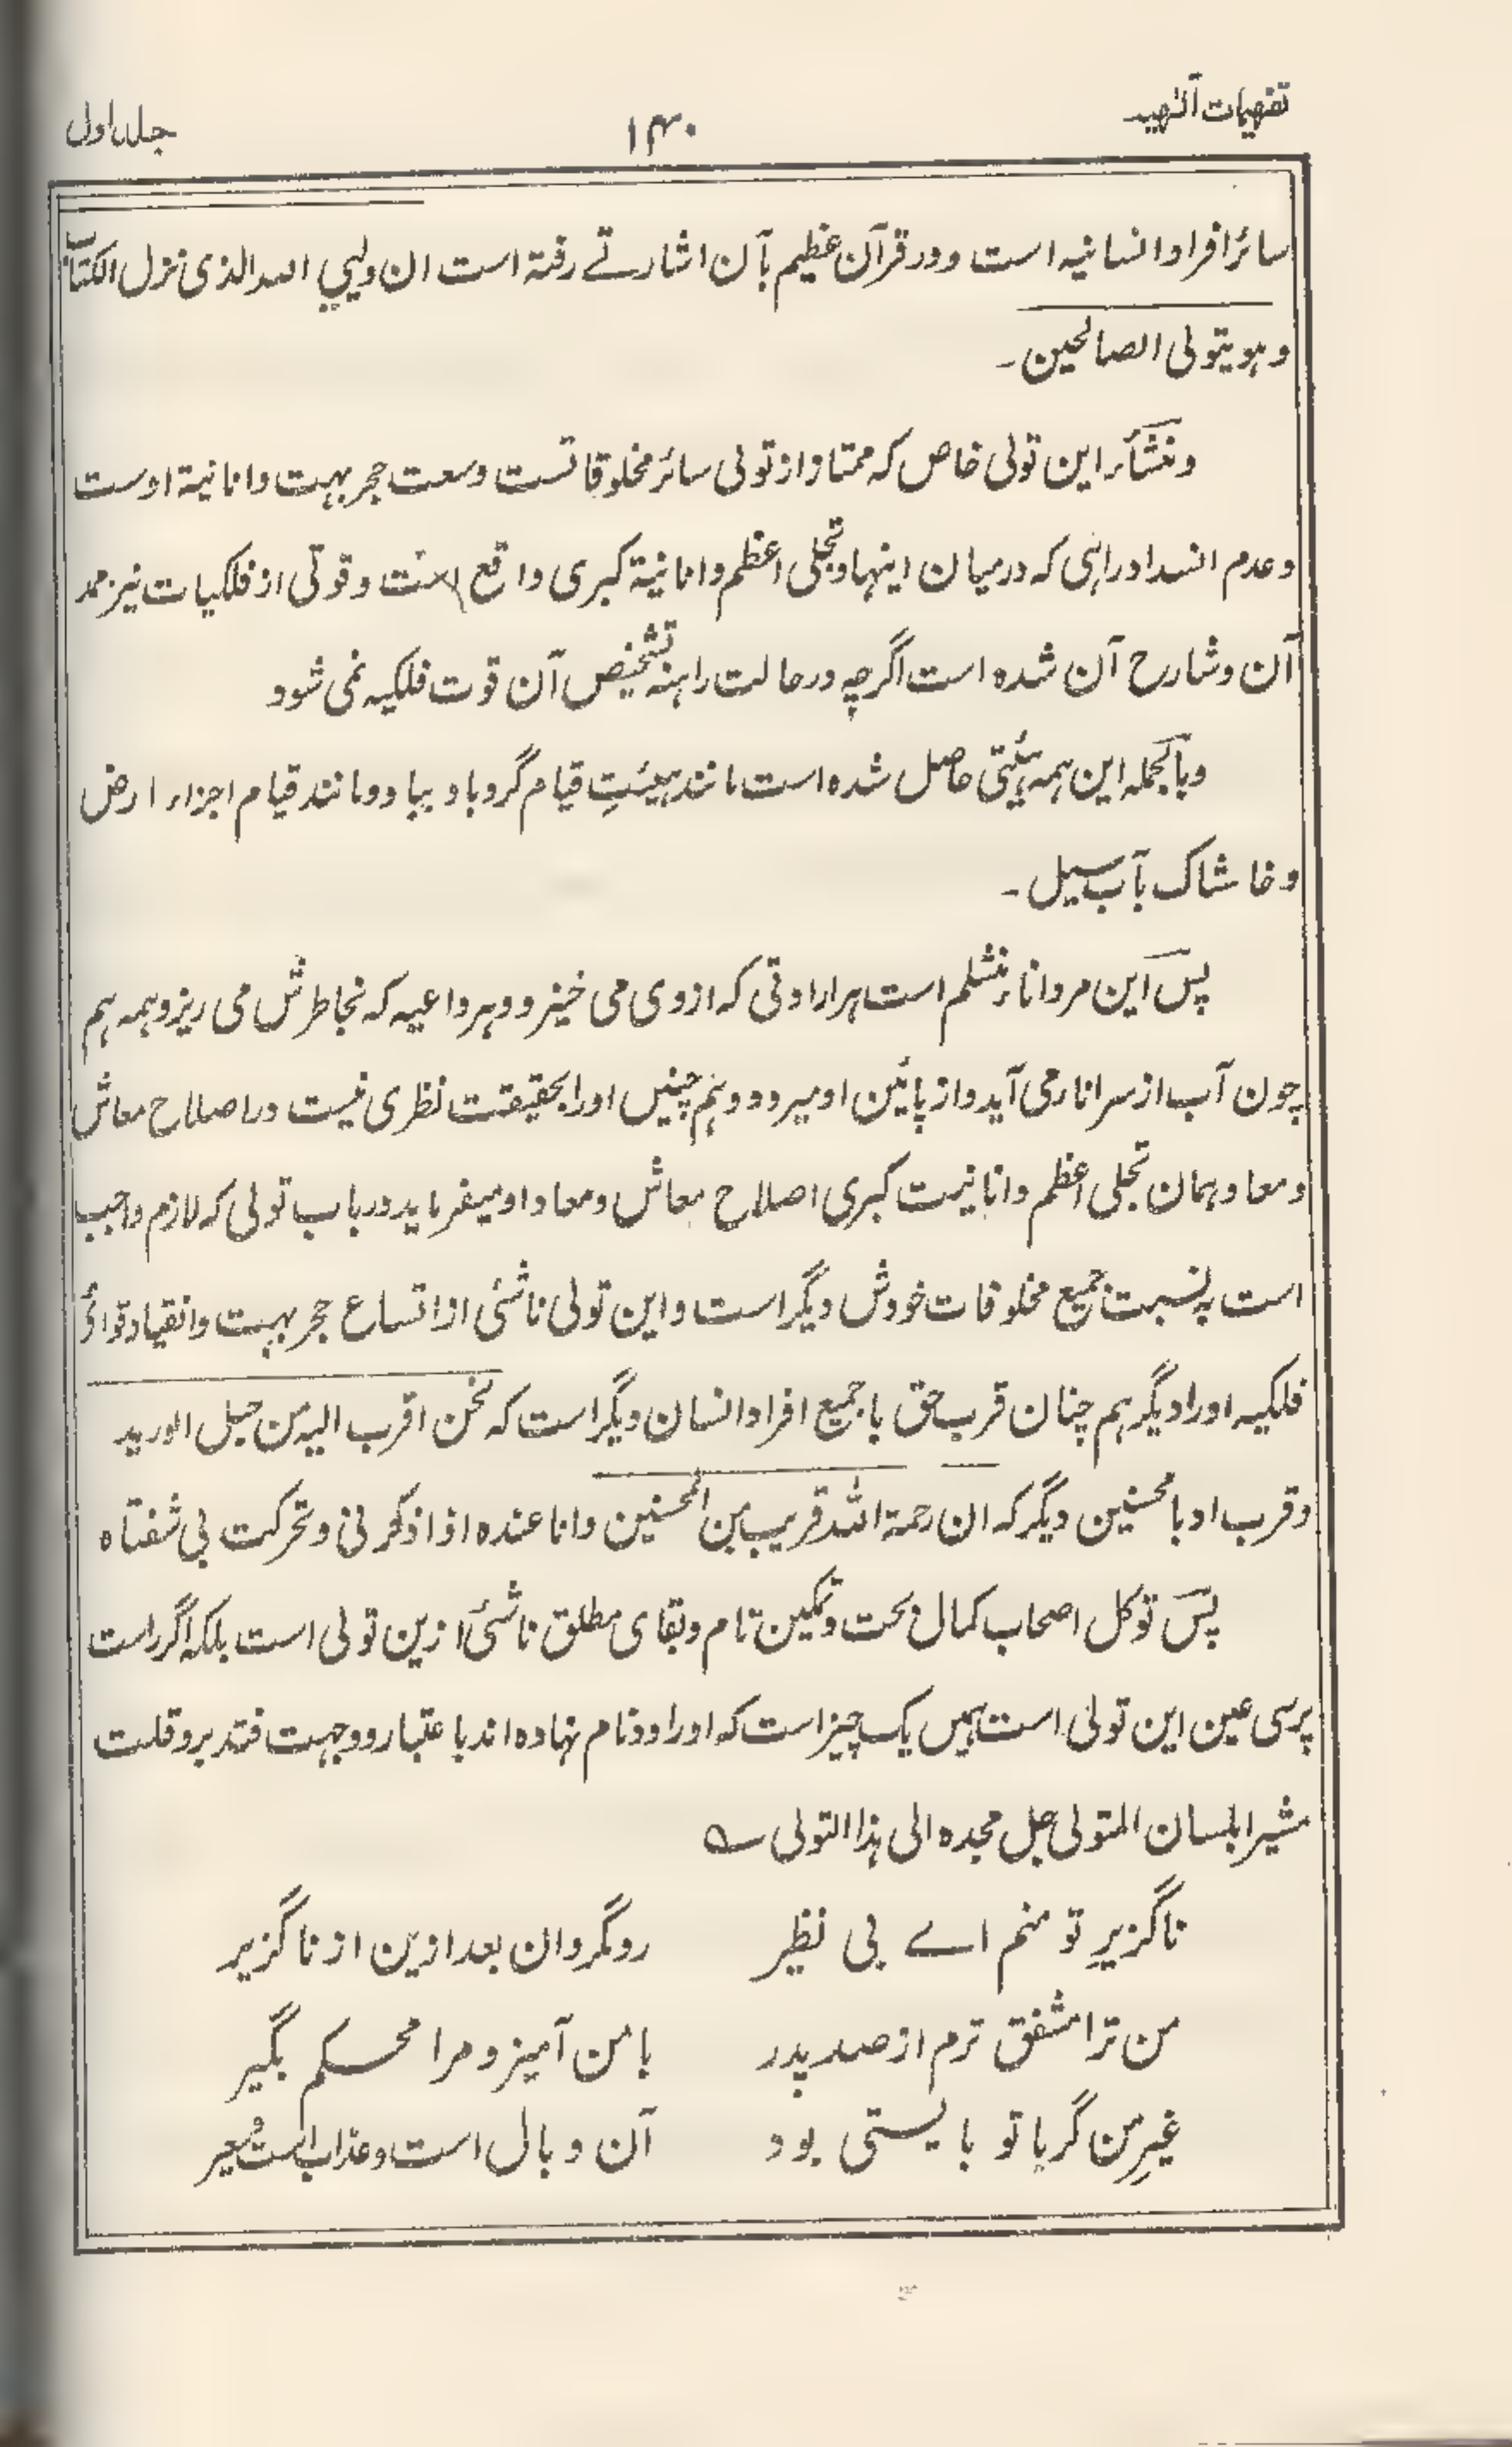 تفہیمات آلٰہیہ
۱۴۰
جلد اول
سائر افراد انسانیہ است و در قرآن عظیم بآن اشارتے رفتہ است ان ولیي اللہ الذی نزل الکتاب
و ہو یتولی الصالحین ۔
و منشأ این تولی خاص کہ ممتاز از تولی سائر مخلوقاتست وسعت حجر بہت و انانیۃ اوست
و عدم انسداد راہی کہ درمیان اینہا و تجلی اعظم و انانیۃ کبری واقع است و قوتی از فلکیات نیز ممد
آن و شارح آن شدہ است اگرچہ در حالت راہنہ تشخیص آن قوت فلکیہ نمی شود
و بالجملہ این ہمہ ہیئتی حاصل شدہ است مانند ہیئتِ قیام گرد باد بباد و مانند قیام اجزاء ارض
و خاشاک بآب سیل ۔
پس این مرد اناء منثلم است ہر ارادتی کہ از وی می خیزد و ہر داعیہ کہ بخاطرش می ریزد ہمہ ہم
چون آب از سر انا رمی آید و از پائین او میرود و ہم چنیں اورا بحقیقت نظری نیست در اصلاح معاش
و معاد ہمان تجلی اعظم و انانیت کبری اصلاح معاش و معاد او میفرماید در باب تولی کہ لازم واجب
است بہ نسبت جمیع مخلوقات خودش دیگر است و این تولی ناشئی از اتساع حجر بہت و انقیاد قوائ
فلکیہ اورا دیگر ہم چنان قرب حق با جمیع افراد انسان دیگر است کہ نحن اقرب الیہ من حبل الورید
و قرب او با محسنین دیگر کہ ان رحمۃ اللہ قریب من المحسنین و انا عندہ اذا ذکرنی و تحرکت بی شفتاہ
پس توکل اصحاب کمال بحت و تمکین تام و بقای مطلق ناشئ ازین تولی است بلکہ اگر راست
پرسی عین این تولی است ہمیں یک چیز است کہ اورا دو نام نہادہ اند با عتبار دو جہت فتدبر و قلت
مشیرا بلسان المتولی جل مجدہ الی ہذا التولی ؎
ناگزیرِ تو منم اے بی نظیر رو مگردان بعد ازین از ناگزیر
من ترا مشفق ترم از صد پدر با من آمیز و مرا محکم بگیر
غیرِ من گر با تو بایستی بود آن وبال است و عذاب است و سعیر